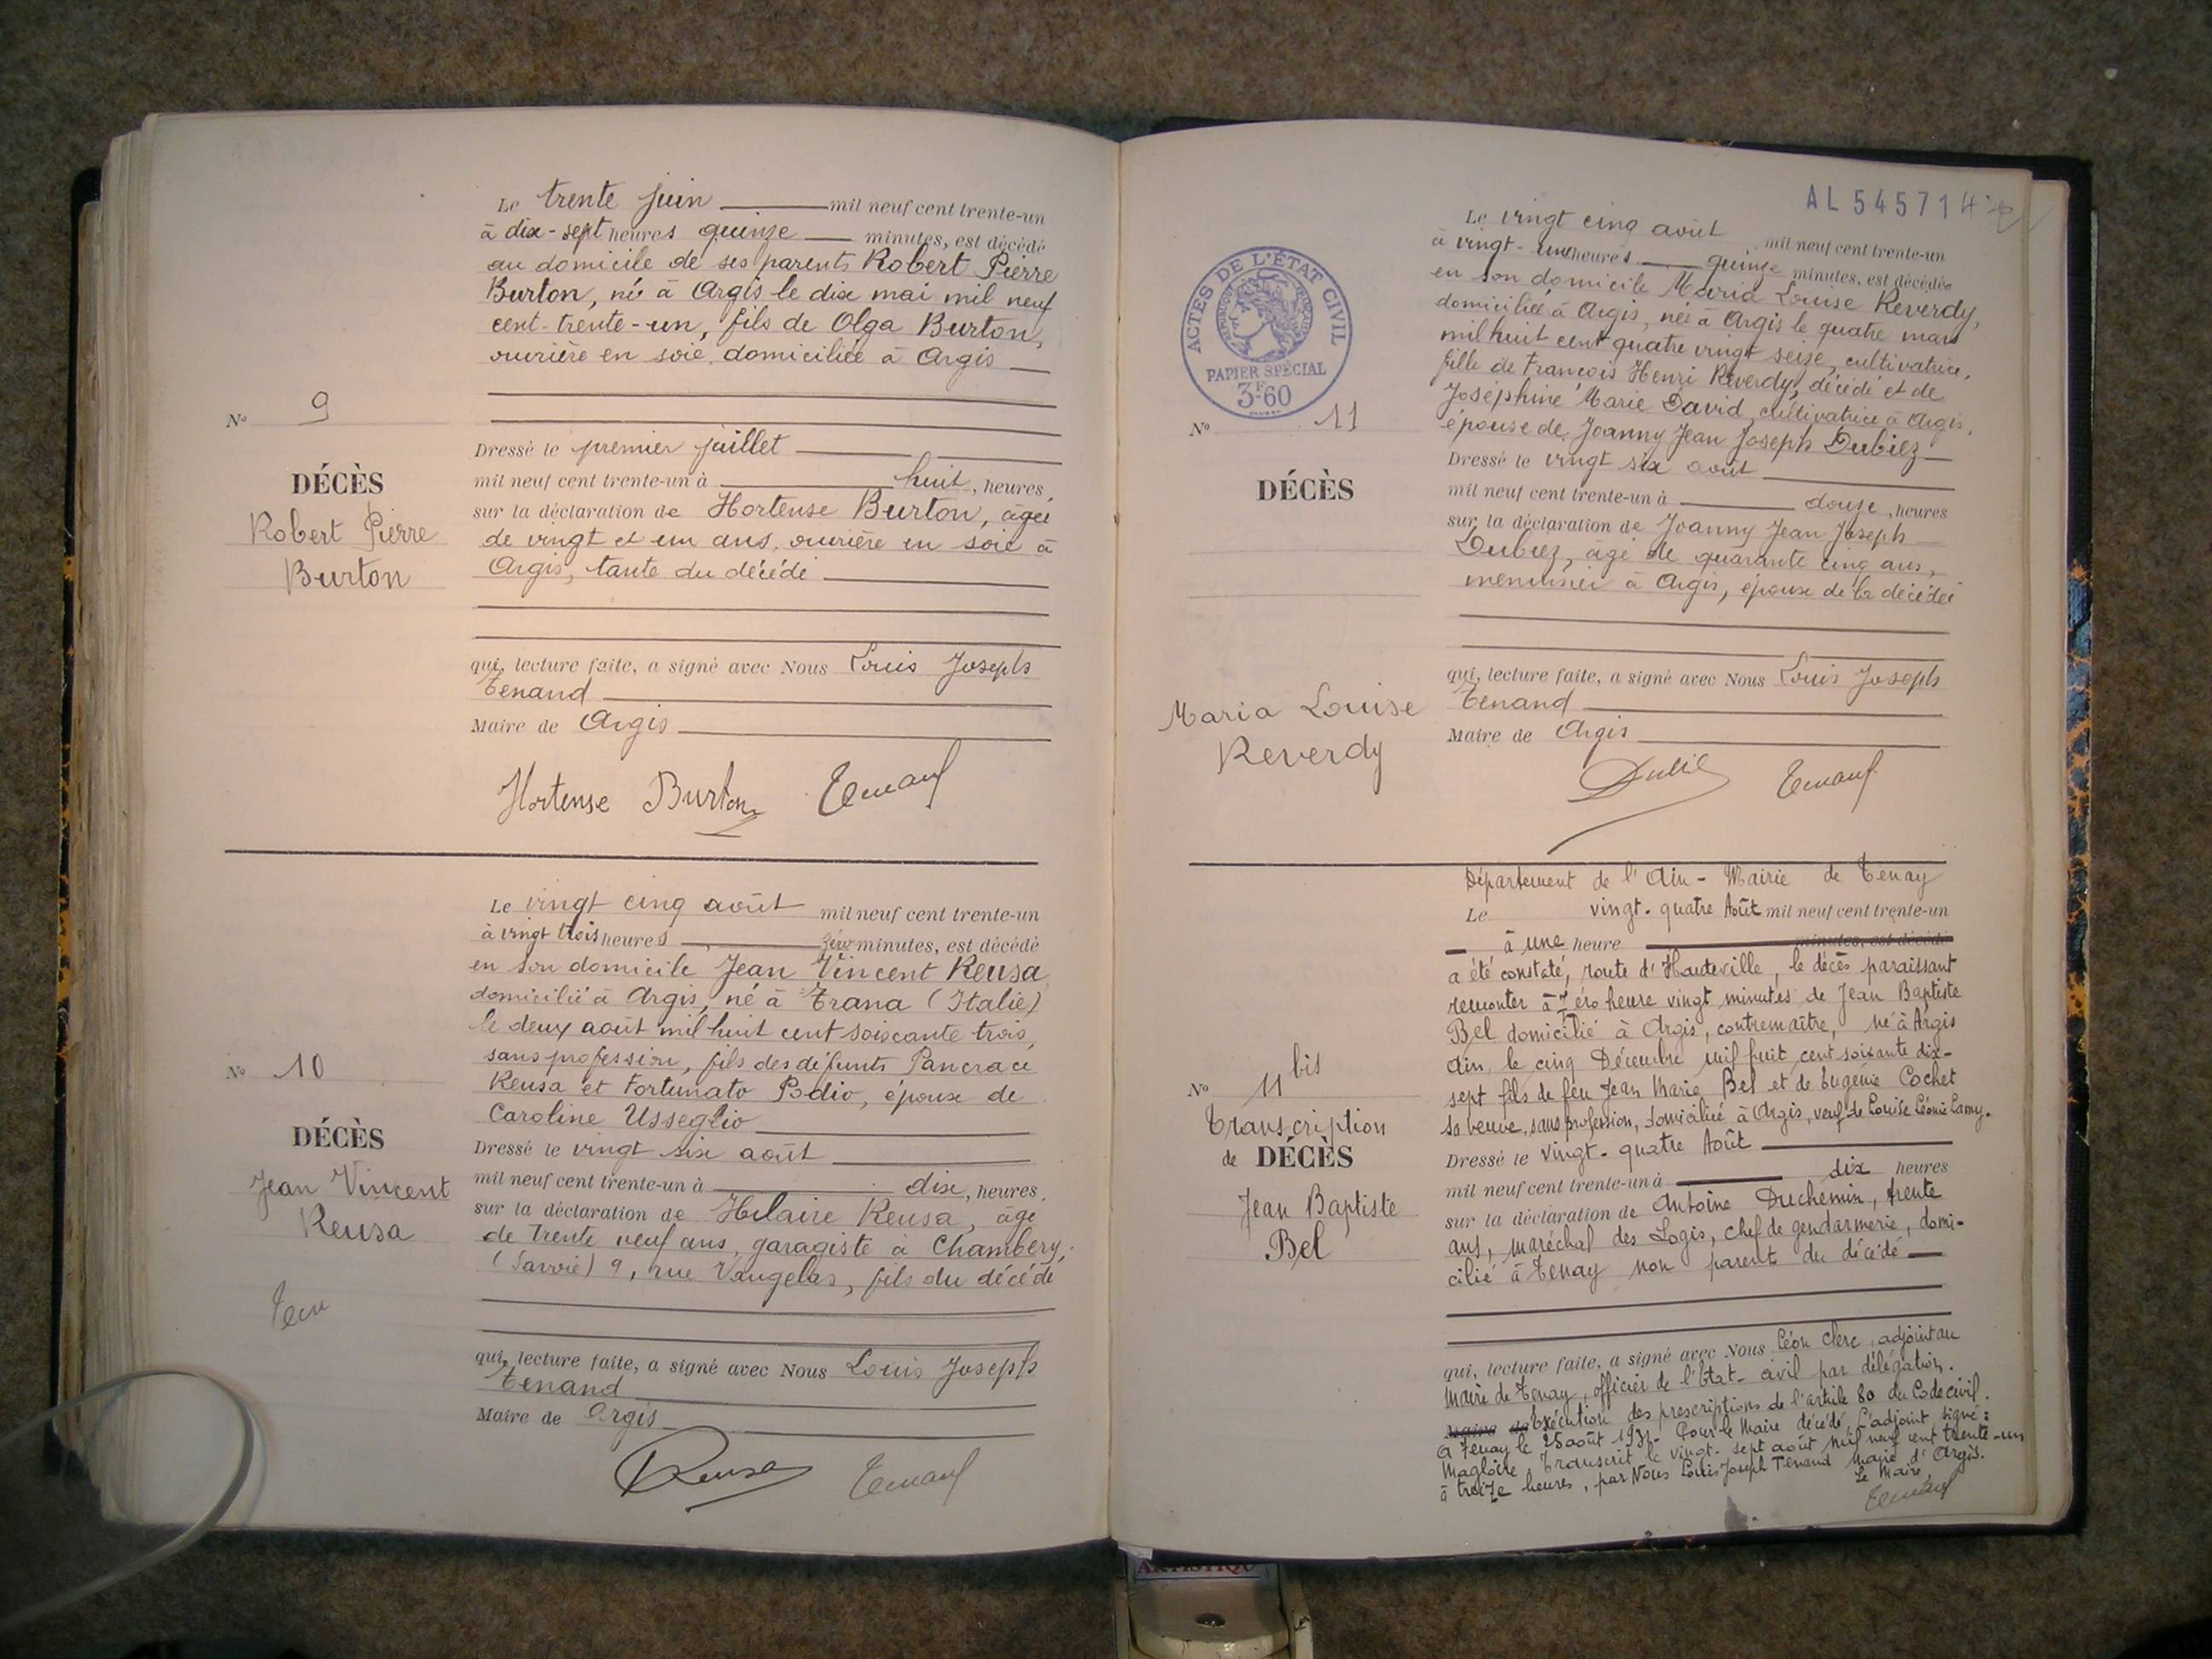 Le trente juin mil neuf cent trente-un
à dix-sept heures quinze minutes, est décédé
au domicile de ses parents Robert Pierre
Burton, né à Argis le dix mai mil neuf
cent-trente-un, fils de Olga Burton,
ouvrière en soie, domiciliée à Argis
N° 9
DÉCÈS
Robert Pierre
Burton
Dressé le premier juillet
mil neuf cent trente-un à huit, heures,
sur la déclaration de Hortense Burton, âgée
de vingt et un ans, ouvrière en soie à
Argis, tante du décédé
qui, lecture faite, a signé avec Nous Louis Joseph
Tenand
Maire de Argis
Hortense Burton Tenand
Le vingt cinq août mil neuf cent trente-un
à vingt trois heures zéro minutes, est décédé
en son domicile Jean Vincent Reusa
domicilié à Argis, né à Trana (Italie)
le deux août mil huit cent soixante trois,
sans profession, fils des défunts Pancrace
Reusa et Fortunato Podio, époux de
Caroline Usseglio
N° 10
DÉCÈS
Jean Vincent
Reusa
Ten
Dressé le vingt six août
mil neuf cent trente-un à dix, heures,
sur la déclaration de Hilaire Reusa, âgé
de trente neuf ans, garagiste à Chambéry,
(Savoie) 9, rue Vaugelas, fils du décédé
qui, lecture faite, a signé avec Nous Louis Joseph
Tenand
Maire de Argis
Reusa Tenand
AL 545714
ACTES DE L'ÉTAT CIVIL
RÉPUBLIQUE FRANÇAISE
PAPIER SPÉCIAL
3F60
Le vingt cinq août mil neuf cent trente-un
à vingt-une heures quinze minutes, est décédée
en son domicile Maria Louise Reverdy,
domiciliée à Argis, née à Argis le quatre mars
mil huit cent quatre vingt seize, cultivatrice,
fille de François Henri Reverdy, décédé et de
Joséphine Marie David, cultivatrice à Argis,
épouse de Joanny Jean Joseph Dubiez
N° 11
DÉCÈS
Maria Louise
Reverdy
Dressé le vingt six août
mil neuf cent trente-un à douze, heures
sur la déclaration de Joanny Jean Joseph
Dubiez, âgé de quarante cinq ans,
menuisier à Argis, époux de la décédée
qui, lecture faite, a signé avec Nous Louis Joseph
Tenand
Maire de Argis
Dubiez Tenand
Département de l'Ain - Mairie de Tenay
Le vingt-quatre Août mil neuf cent trente-un
à une heure minutes, est décédé
a été constaté, route d'Hauteville, le décès paraissant
remonter à zéro heure vingt minutes de Jean Baptiste
Bel domicilié à Argis, contremaître, né à Argis
Ain, le cinq Décembre mil huit cent soixante dix-
sept fils de feu Jean Marie Bel et de Eugénie Cochet
sa veuve, sans profession, domiciliée à Argis, veuf de Louise Léonie Lamy.
N° 11 bis
Transcription
de DÉCÈS
Jean Baptiste
Bel
Dressé le vingt-quatre Août
mil neuf cent trente-un à dix heures
sur la déclaration de Antoine Duchemin, trente
ans, maréchal des Logis, chef de gendarmerie, domi-
cilié à Tenay non parent du décédé
qui, lecture faite, a signé avec Nous Léon Clerc, adjoint au
Maire de Tenay, officier de l'Etat-civil par délégation.
Maire de Exécution des prescriptions de l'article 80 du Code civil.
A Tenay le 25 août 1931. Pour le Maire décédé, l'adjoint, signé:
Magloire. Transcrit le vingt-sept août mil neuf cent trente-un
à treize heures, par Nous Louis Joseph Tenand Maire d'Argis.
Le Maire,
Tenand
ARTISTIQU